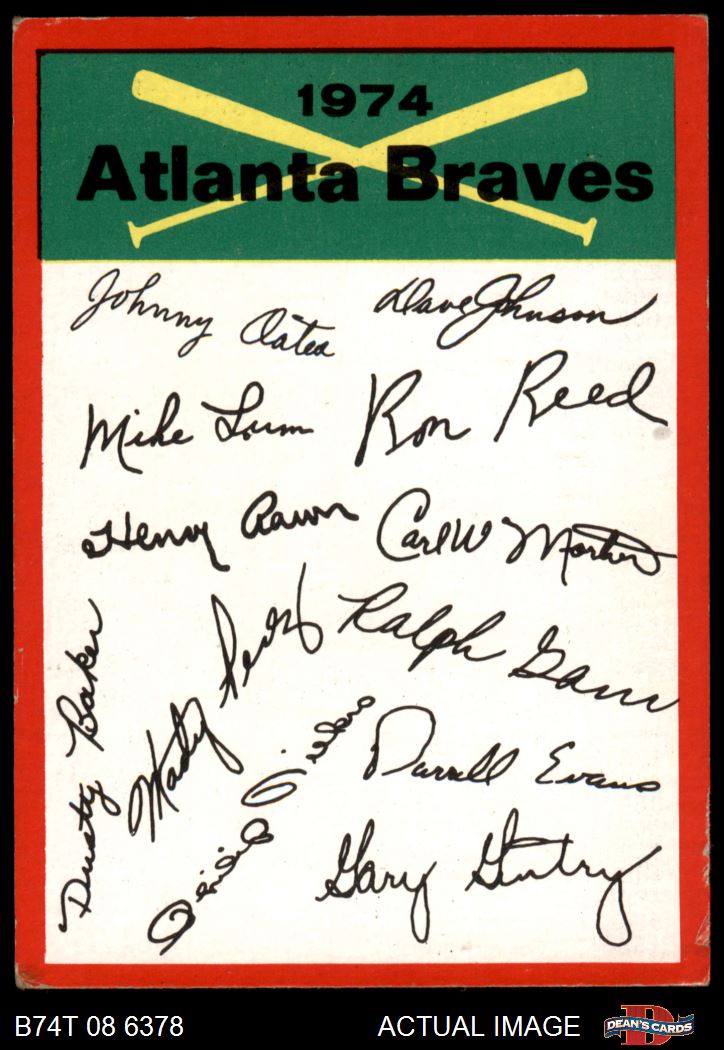 1974
Atlanta Braves
Johnny Oates
Dave Johnson
Mike Lum
Ron Reed
Henry Aaron
Carl W Morton
Ralph Garr
Dusty Baker
Marty Perez
Darrell Evans
Gary Gentry
B74T 08 6378
ACTUAL IMAGE
D
DEAN'S CARDS